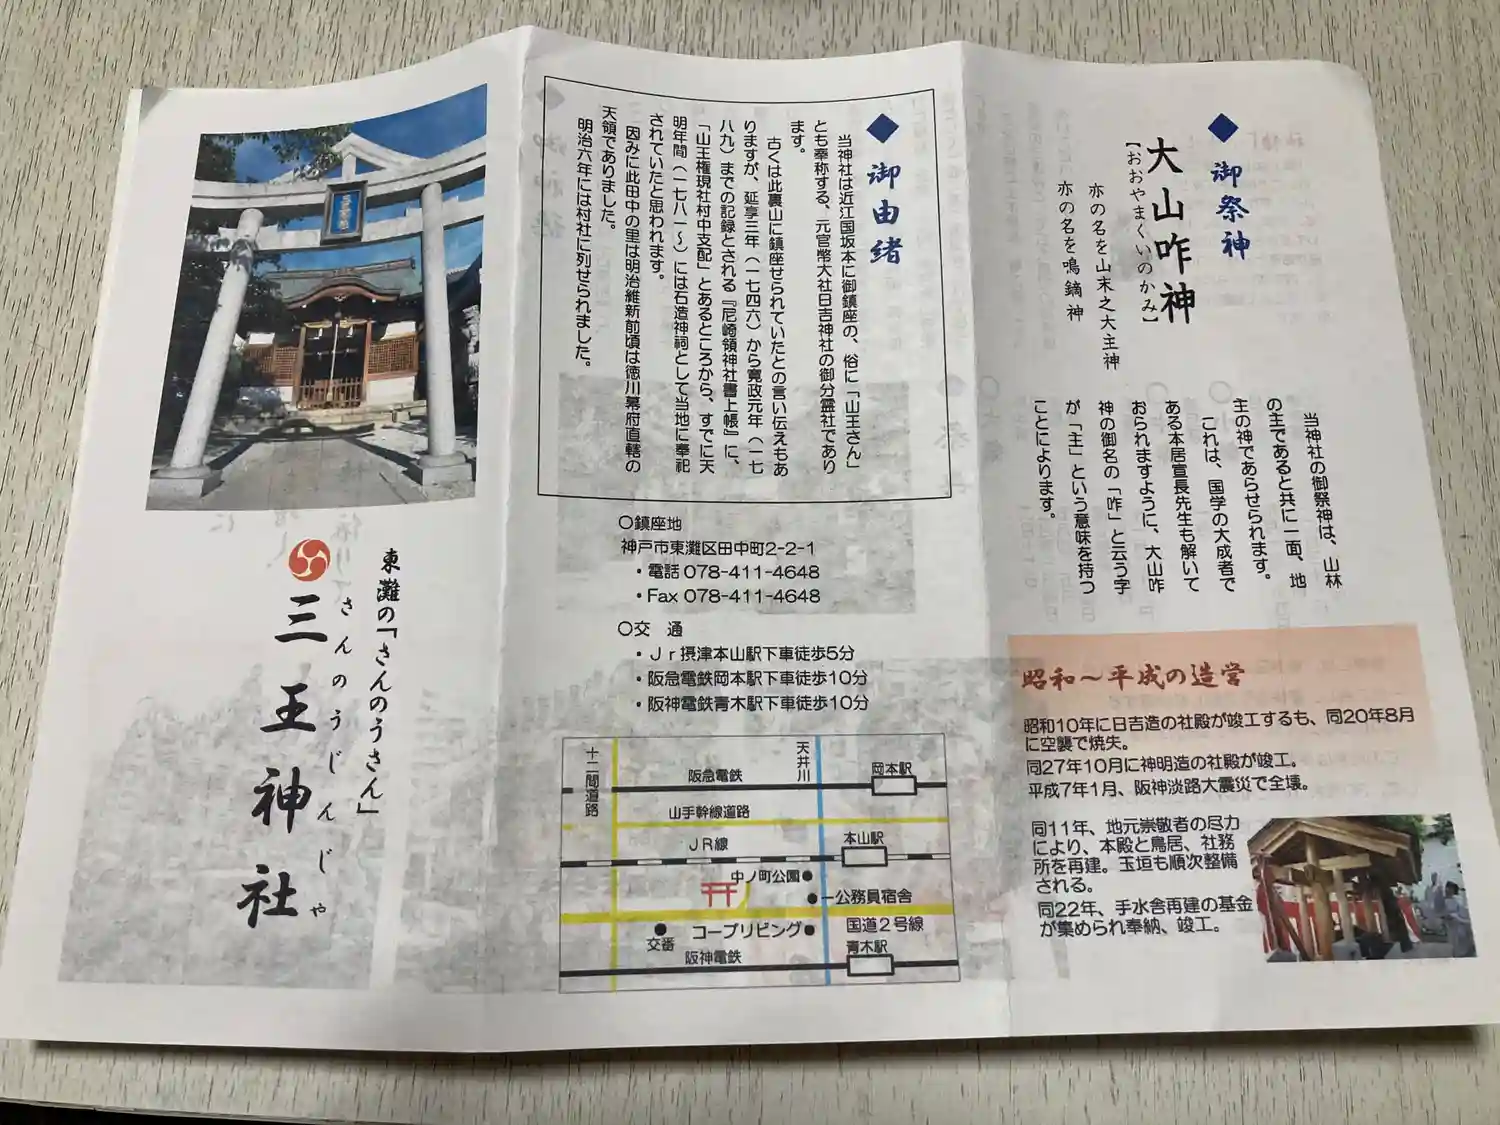 ◆御祭神
大山咋神
【おおやまくいのかみ】
亦の名を山末之大主神
亦の名を鳴鏑神
当神社の御祭神は、山林
の主であると共に一面、地
主の神であらせられます。
これは、国学の大成者で
ある本居宣長先生も解いて
おられますように、大山咋
神の御名の「咋」と云う字
が「主」という意味を持つ
ことによります。
昭和～平成の造営
昭和10年に日吉造の社殿が竣工するも、同20年8月
に空襲で焼失。
同27年10月に神明造の社殿が竣工。
平成7年1月、阪神淡路大震災で全壊。
同11年、地元崇敬者の尽力
により、本殿と鳥居、社務
所を再建。玉垣も順次整備
される。
同22年、手水舎再建の基金
が集められ奉納、竣工。
◆御由緒
当神社は近江国坂本に御鎮座の、俗に「山王さん」
とも奉称する、元官幣大社日吉神社の御分霊社であり
ます。
古くは此裏山に鎮座せられていたとの言い伝えもあ
りますが、延享三年（一七四六）から寛政元年（一七
八九）までの記録とされる『尼崎領神社書上帳』に、
「山王権現社村中支配」とあるところから、すでに天
明年間（一七八一～）には石造神祠として当地に奉祀
されていたと思われます。
因みに此田中の里は明治維新前頃は徳川幕府直轄の
天領でありました。
明治六年には村社に列せられました。
○鎮座地
神戸市東灘区田中町2-2-1
・電話 078-411-4648
・Fax 078-411-4648
○交　通
・Ｊｒ摂津本山駅下車徒歩5分
・阪急電鉄岡本駅下車徒歩10分
・阪神電鉄青木駅下車徒歩10分
十二間道路
天井川
阪急電鉄
岡本駅
山手幹線道路
ＪＲ線
本山駅
中ノ町公園●
●ー公務員宿舎
国道２号線
コープリビング●
交番
青木駅
阪神電鉄
東灘の「さんのうさん」
さんのうじんじゃ
三王神社